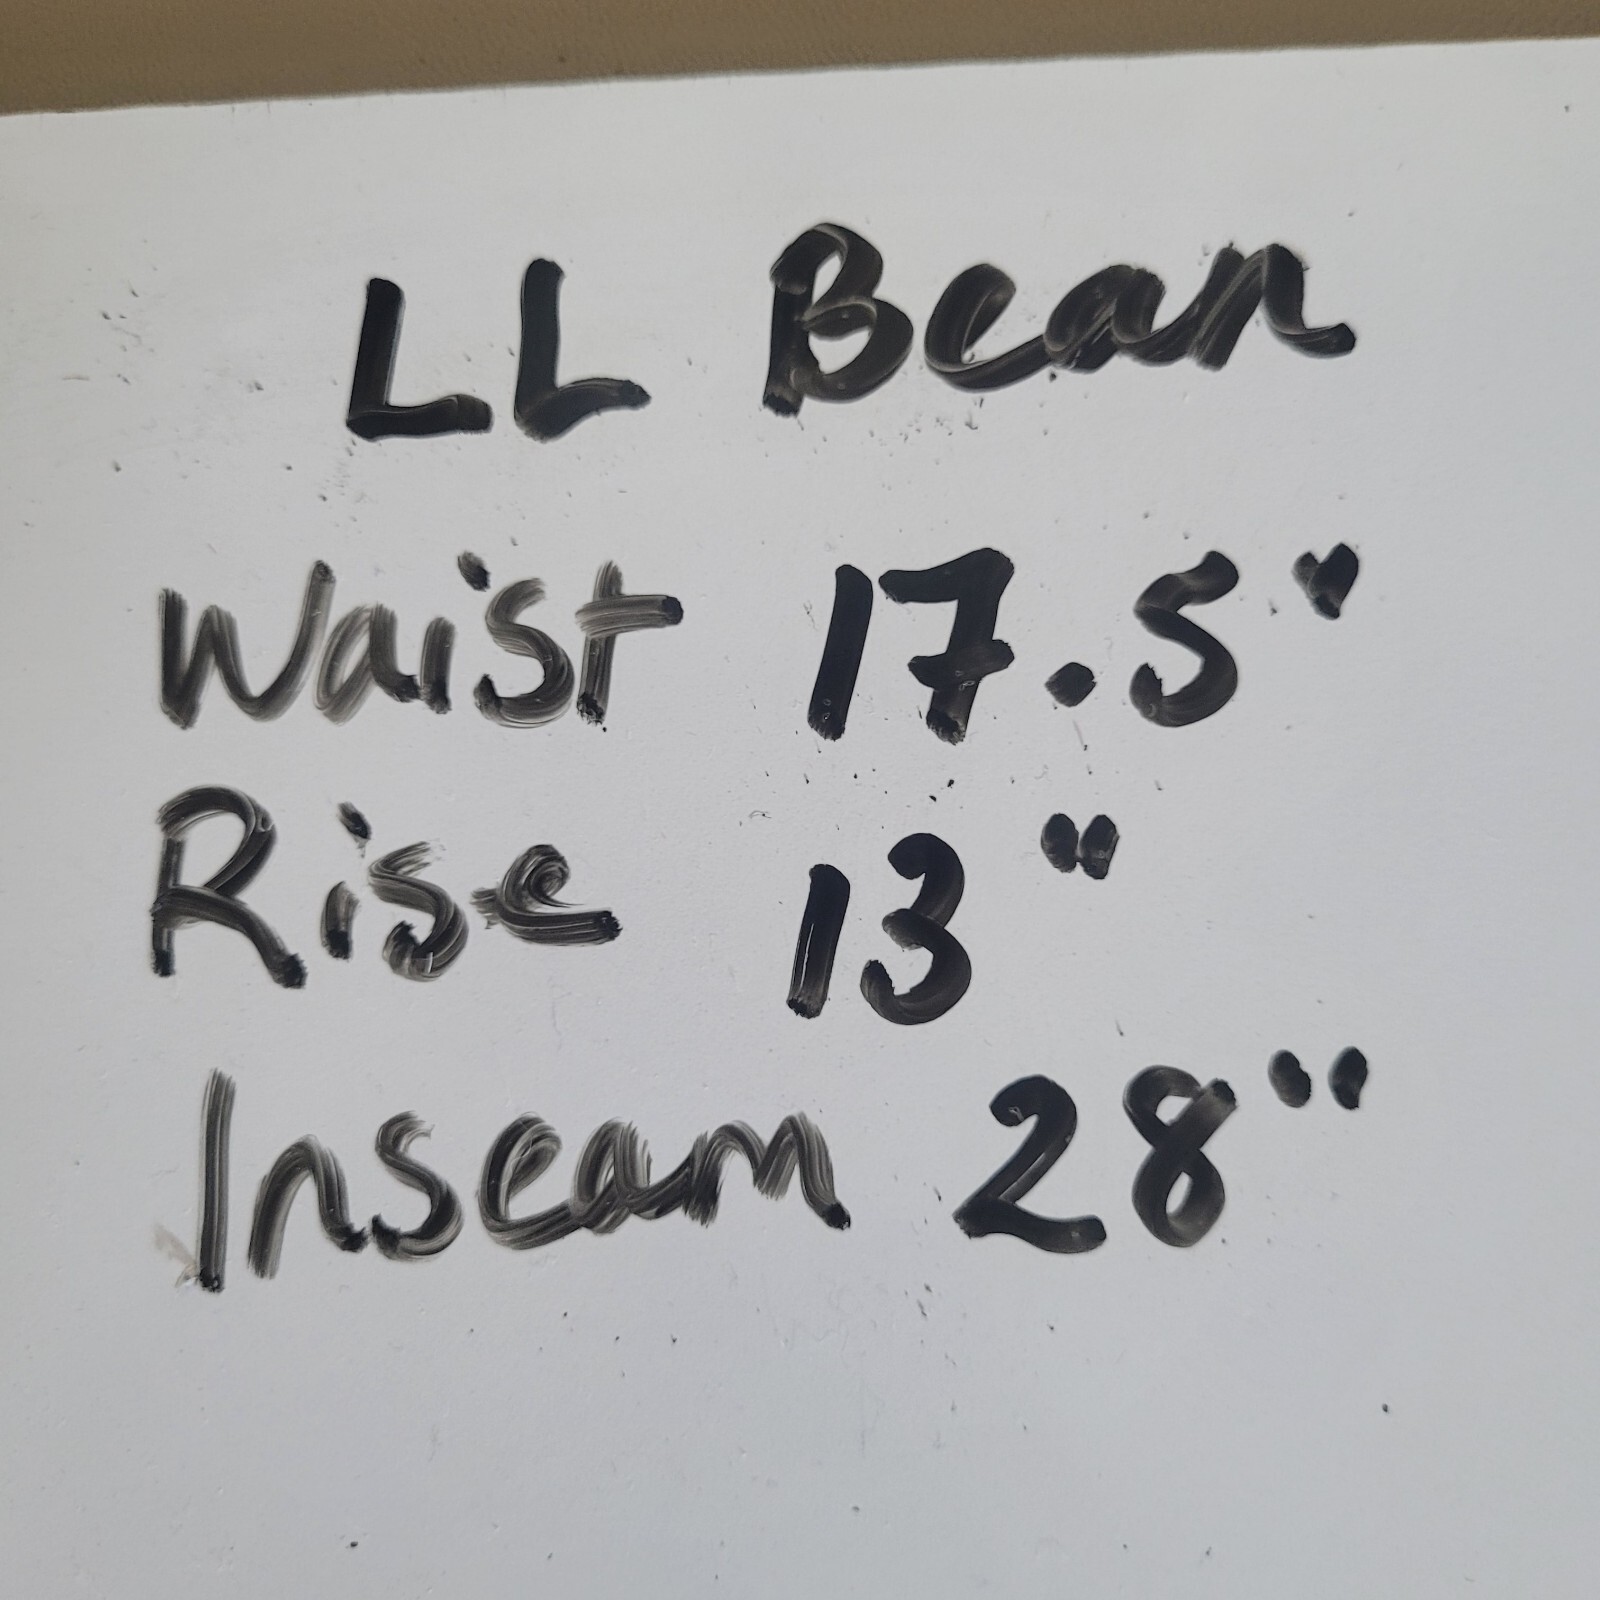 LL Bean
Waist 17.5"
Rise 13"
Inseam 28"